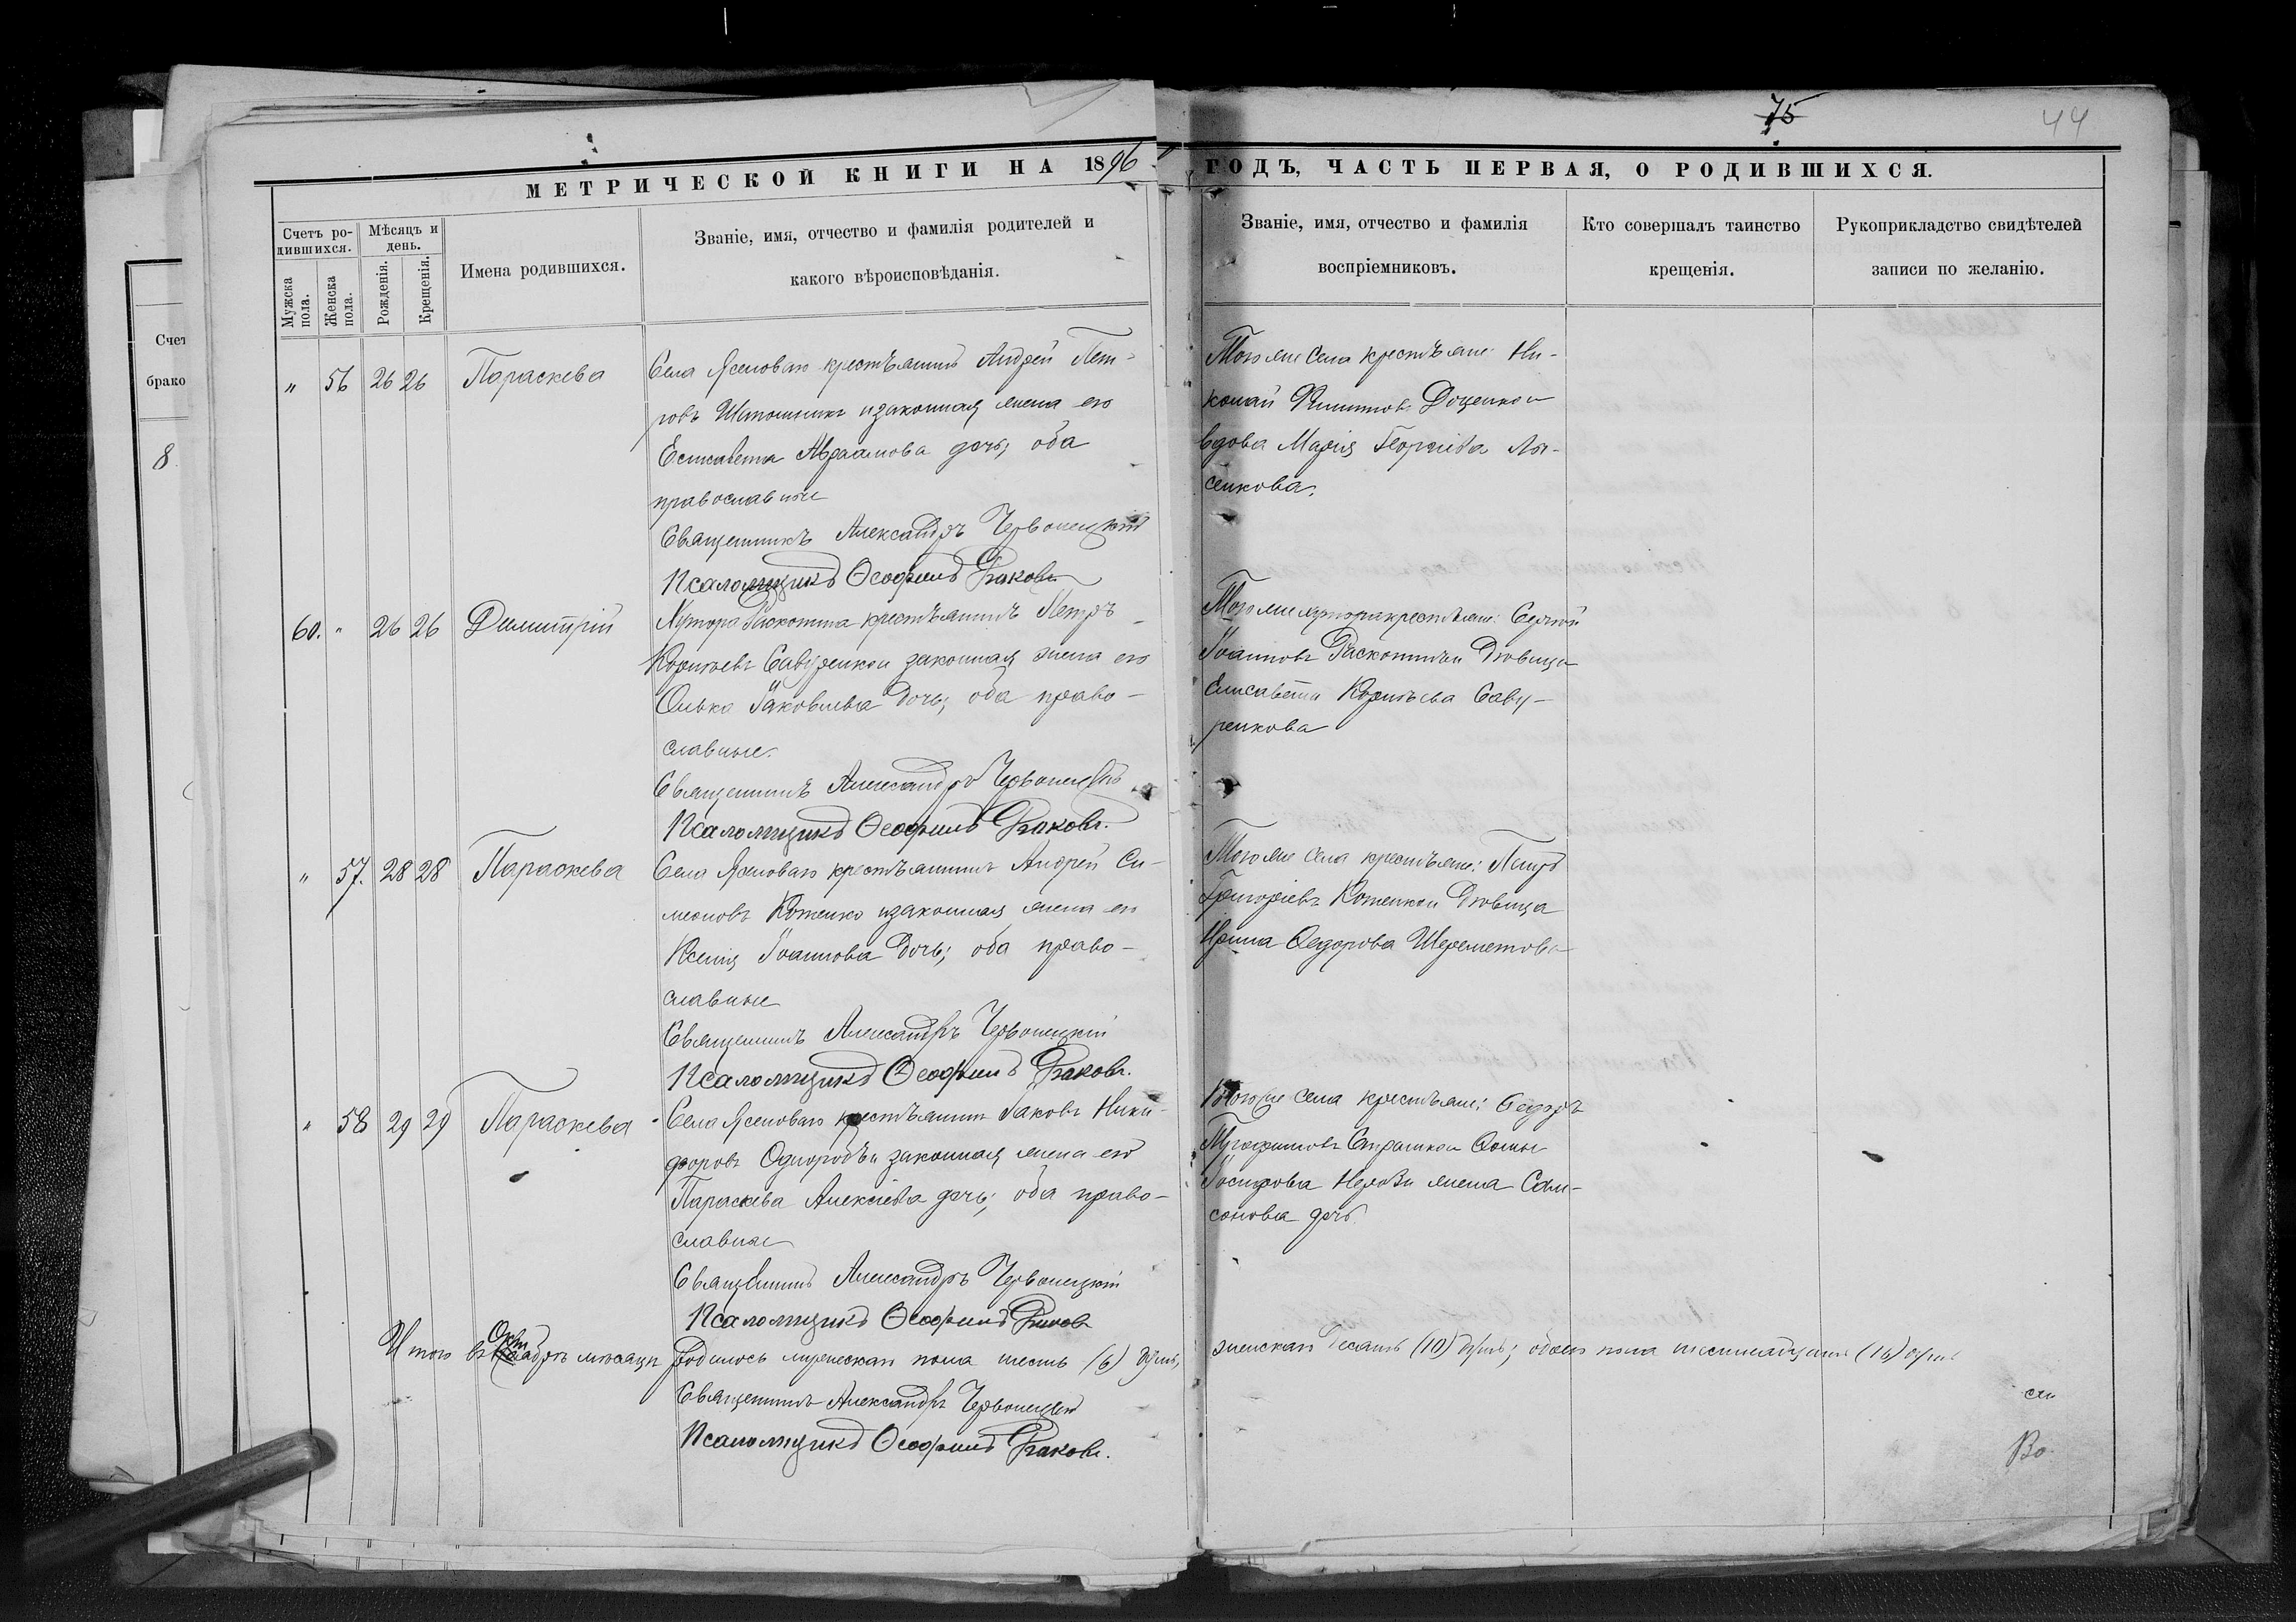 75
44
МЕТРИЧЕСКОЙ КНИГИ НА 1896
ГОДЪ, ЧАСТЬ ПЕРВАЯ, О РОДИВШИХСЯ.
Счетъ ро-
дившихся.
Мѣсяцъ и
день.
Мужска
пола.
Женска
пола.
Рожденія.
Крещенія.
Имена родившихся.
Званіе, имя, отчество и фамилія родителей и
какого вѣроисповѣданія.
Званіе, имя, отчество и фамилія
воспріемниковъ.
Кто совершалъ таинство
крещенія.
Рукоприкладство свидѣтелей
записи по желанію.
Счет
брако
8
" 56 26 26 Параскева
Села Ясеноваго крестьянинъ Андрей Пет-
ровъ изаконная жена его
Елисавета Авраамова дочь; оба
православные
Священникъ Александръ Червонецкій
Псаломщикъ Ѳеофилъ
Тогоже села крестьяне: Ни-
колай Филиповъ Доценкои
вдова Марія Георгіева Лы-
сенкова.
60. " 26 26 Димитрій
Хутора крестьянинъ Петръ
Савуренкои законная жена его
Іаковлева дочь; оба право-
славные.
Священникъ Александръ Червонецкій
Псаломщикъ Ѳеофилъ
Тогоже хуторакрестьяне: Сергій
Іоанновъ Дѣвица
Елисавета Саву-
ренкова
" 57. 28 28 Параскева
Села Ясеноваго крестьянинъ Андрей Си-
меоновъ изаконная жена его
Ксенія Іоаннова дочь; оба право-
славные
Священникъ Александръ Червонецкій
Псаломщикъ Ѳеофилъ
Тогоже села крестьяне: Петръ
Григоріевъ Дѣвица
Ирина Ѳедорова Шереметова
" 58 29 29 Параскева
Села Ясеноваго крестьянинъ Іаковъ Ники-
форовъ законная жена его
Параскева Алексіева дочь; оба право-
славные
Священникъ Александръ Червонецкій
Псаломщикъ Ѳеофилъ
Тогоже села крестьяне: Ѳедоръ
Іосифова жена Сам-
сонова дочь.
Итого въ Октябрѣ мѣсяцѣ родилось мужескаго пола шесть (6) душъ, женскаго десять (10) душъ; обоего пола шестнадцать (16) душъ
Священникъ Александръ Червонецкій
Псаломщикъ Ѳеофилъ
Во